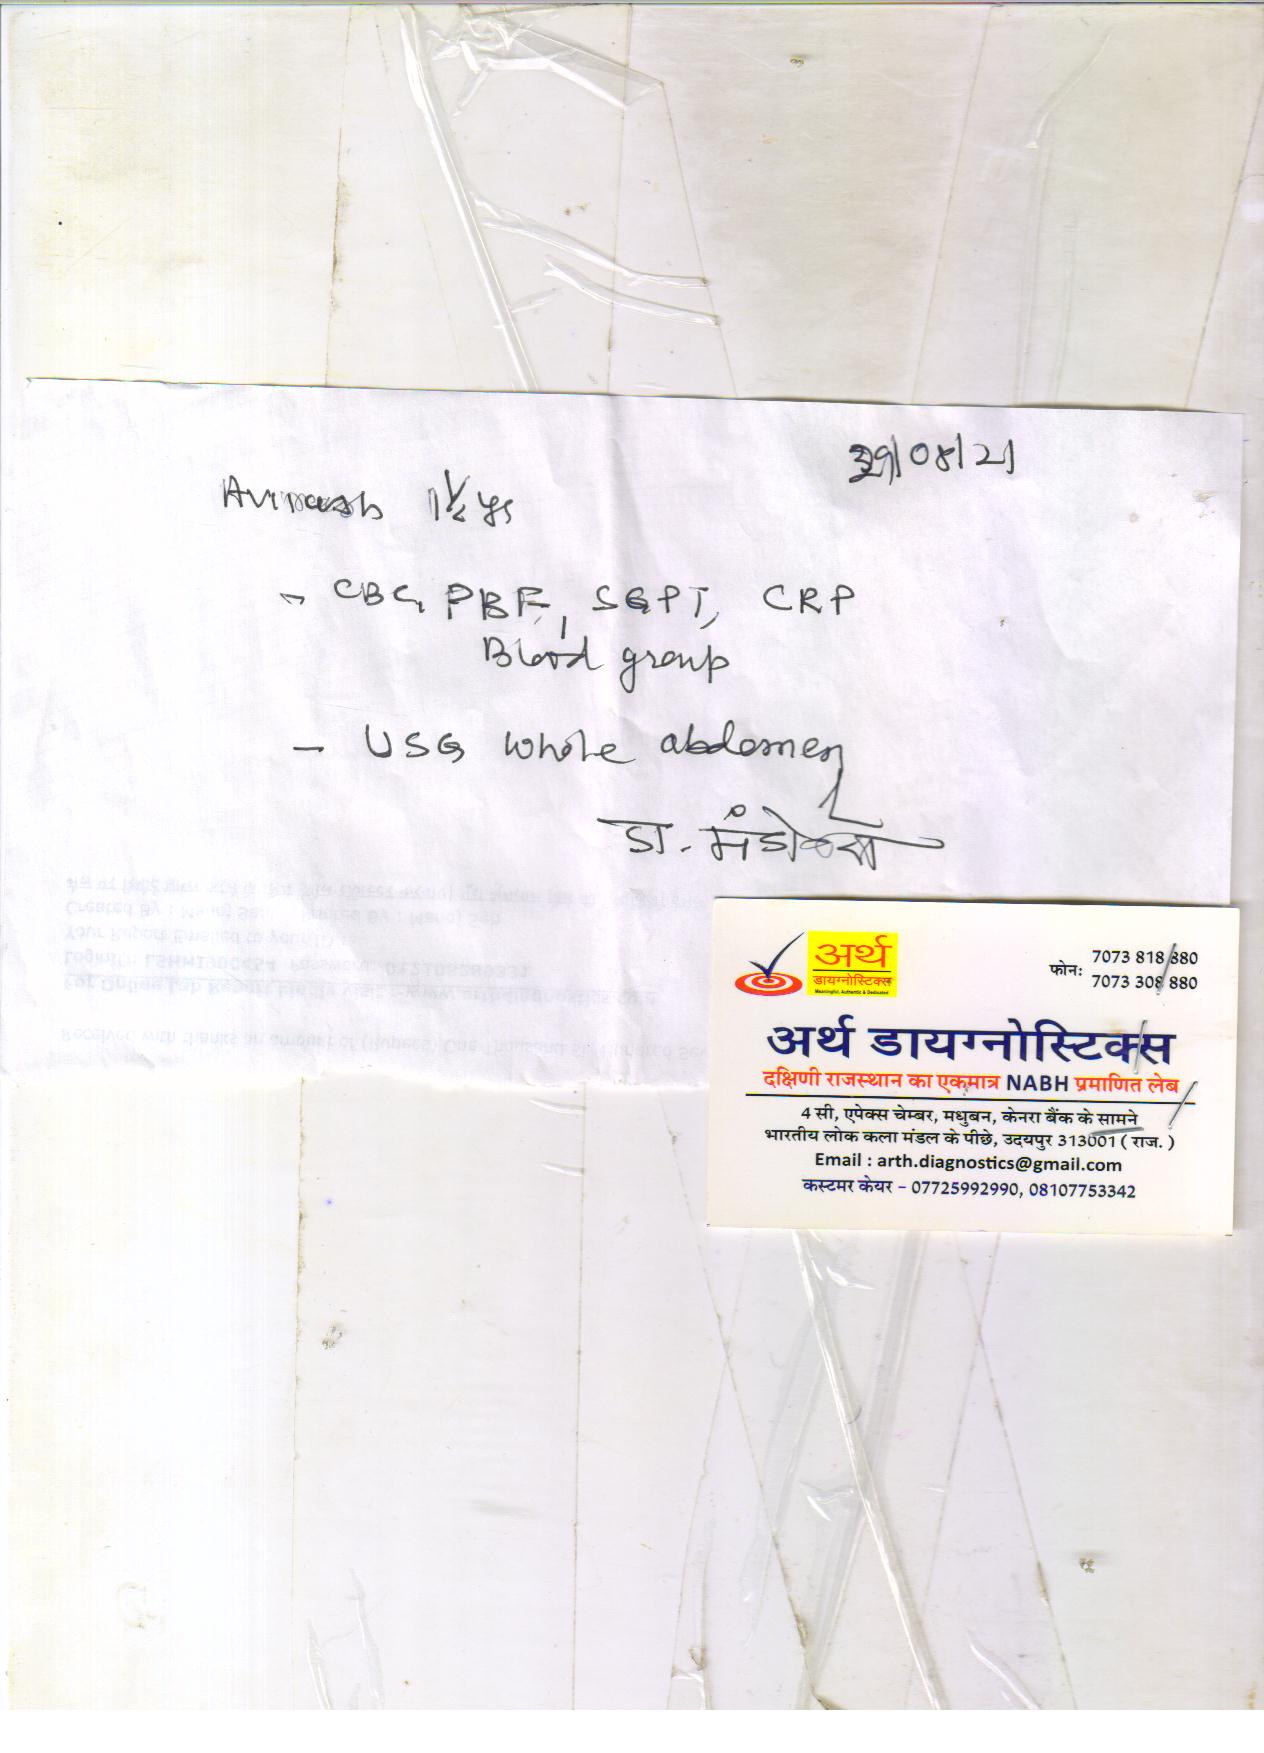 Avinash 1½ yrs
- CBC, PBF, SGPT, CRP
Blood group
- USG whole abdomen
डा.
अर्थ
डायग्नोस्टिक्स
Meaningful, Authentic & Dedicated
फोनः 7073 818 880
7073 308 880
अर्थ डायग्नोस्टिक्स
दक्षिणी राजस्थान का एकमात्र NABH प्रमाणित लेब
4 सी, एपेक्स चेम्बर, मधुबन, केनरा बैंक के सामने
भारतीय लोक कला मंडल के पीछे, उदयपुर 313001 ( राज. )
Email : arth.diagnostics@gmail.com
कस्टमर केयर – 07725992990, 08107753342